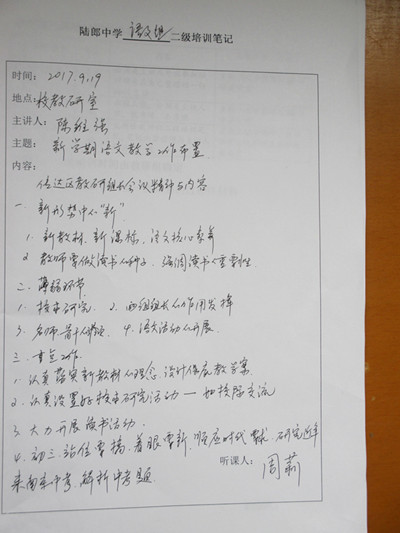 陆郎中学 语文组 二级培训笔记
时间：2017.9.19
地点：校教研室
主讲人：陈维强
主题：新学期语文教学工作布置
内容：
传达区教研组长会议精神与内容
一. 新形势中心"新"
1. 新教材、新课标、语文核心素养
2. 教师要做读书的种子. 强调读书的重要性.
二. 薄弱环节
1. 校本研究. 2. 两组组长的作用发挥
3. 名师骨干 4. 语文活动的开展.
三. 重点工作.
1. 认真落实新教材的理念, 设计保底教学案.
2. 认真设置好校本研究活动 — 如校际交流
3. 大力开展读书活动.
4. 初三站位要搞, 着眼要新, 顺应时代要求. 研究近年
听课人：周莉
来南京中考, 解析中考题.